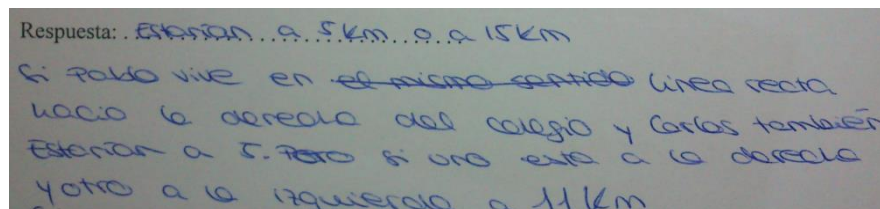 Respuesta: Estarían a 5 km o a 15 km
Si Pablo vive en el mismo sentido linea recta
hacia la derecha del colegio y Carlos también
Estarian a 5. Pero si uno esta a la derecha
y otro a la izquierda a 11 km